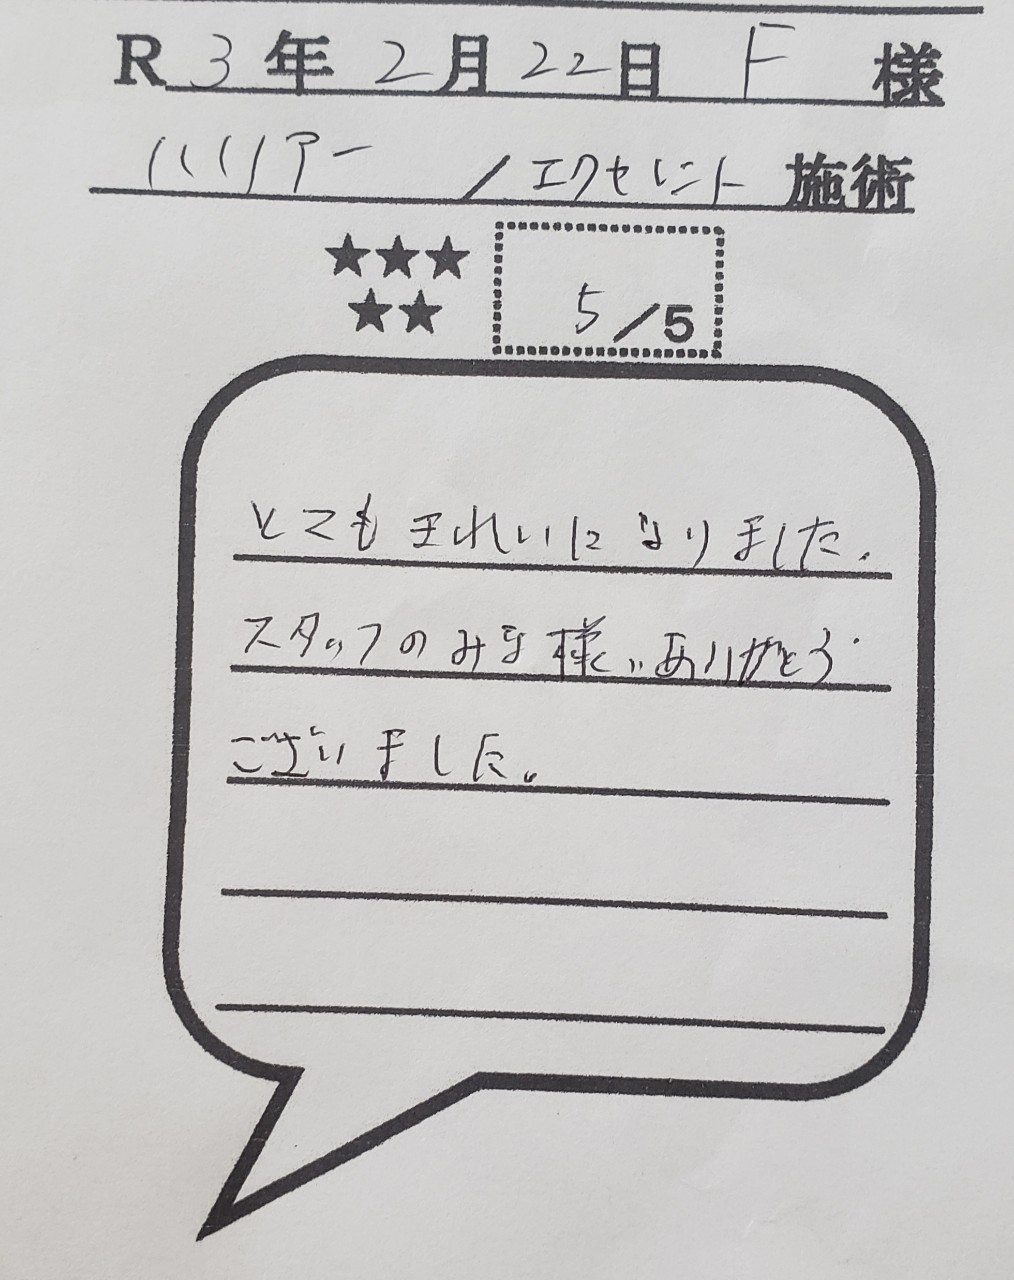 R 3年 2月 22日 F 様
ハリアー / エクセレント 施術
★★★
★★
5/5
とてもきれいになりました。
スタッフのみな様、ありがとう
ございました。